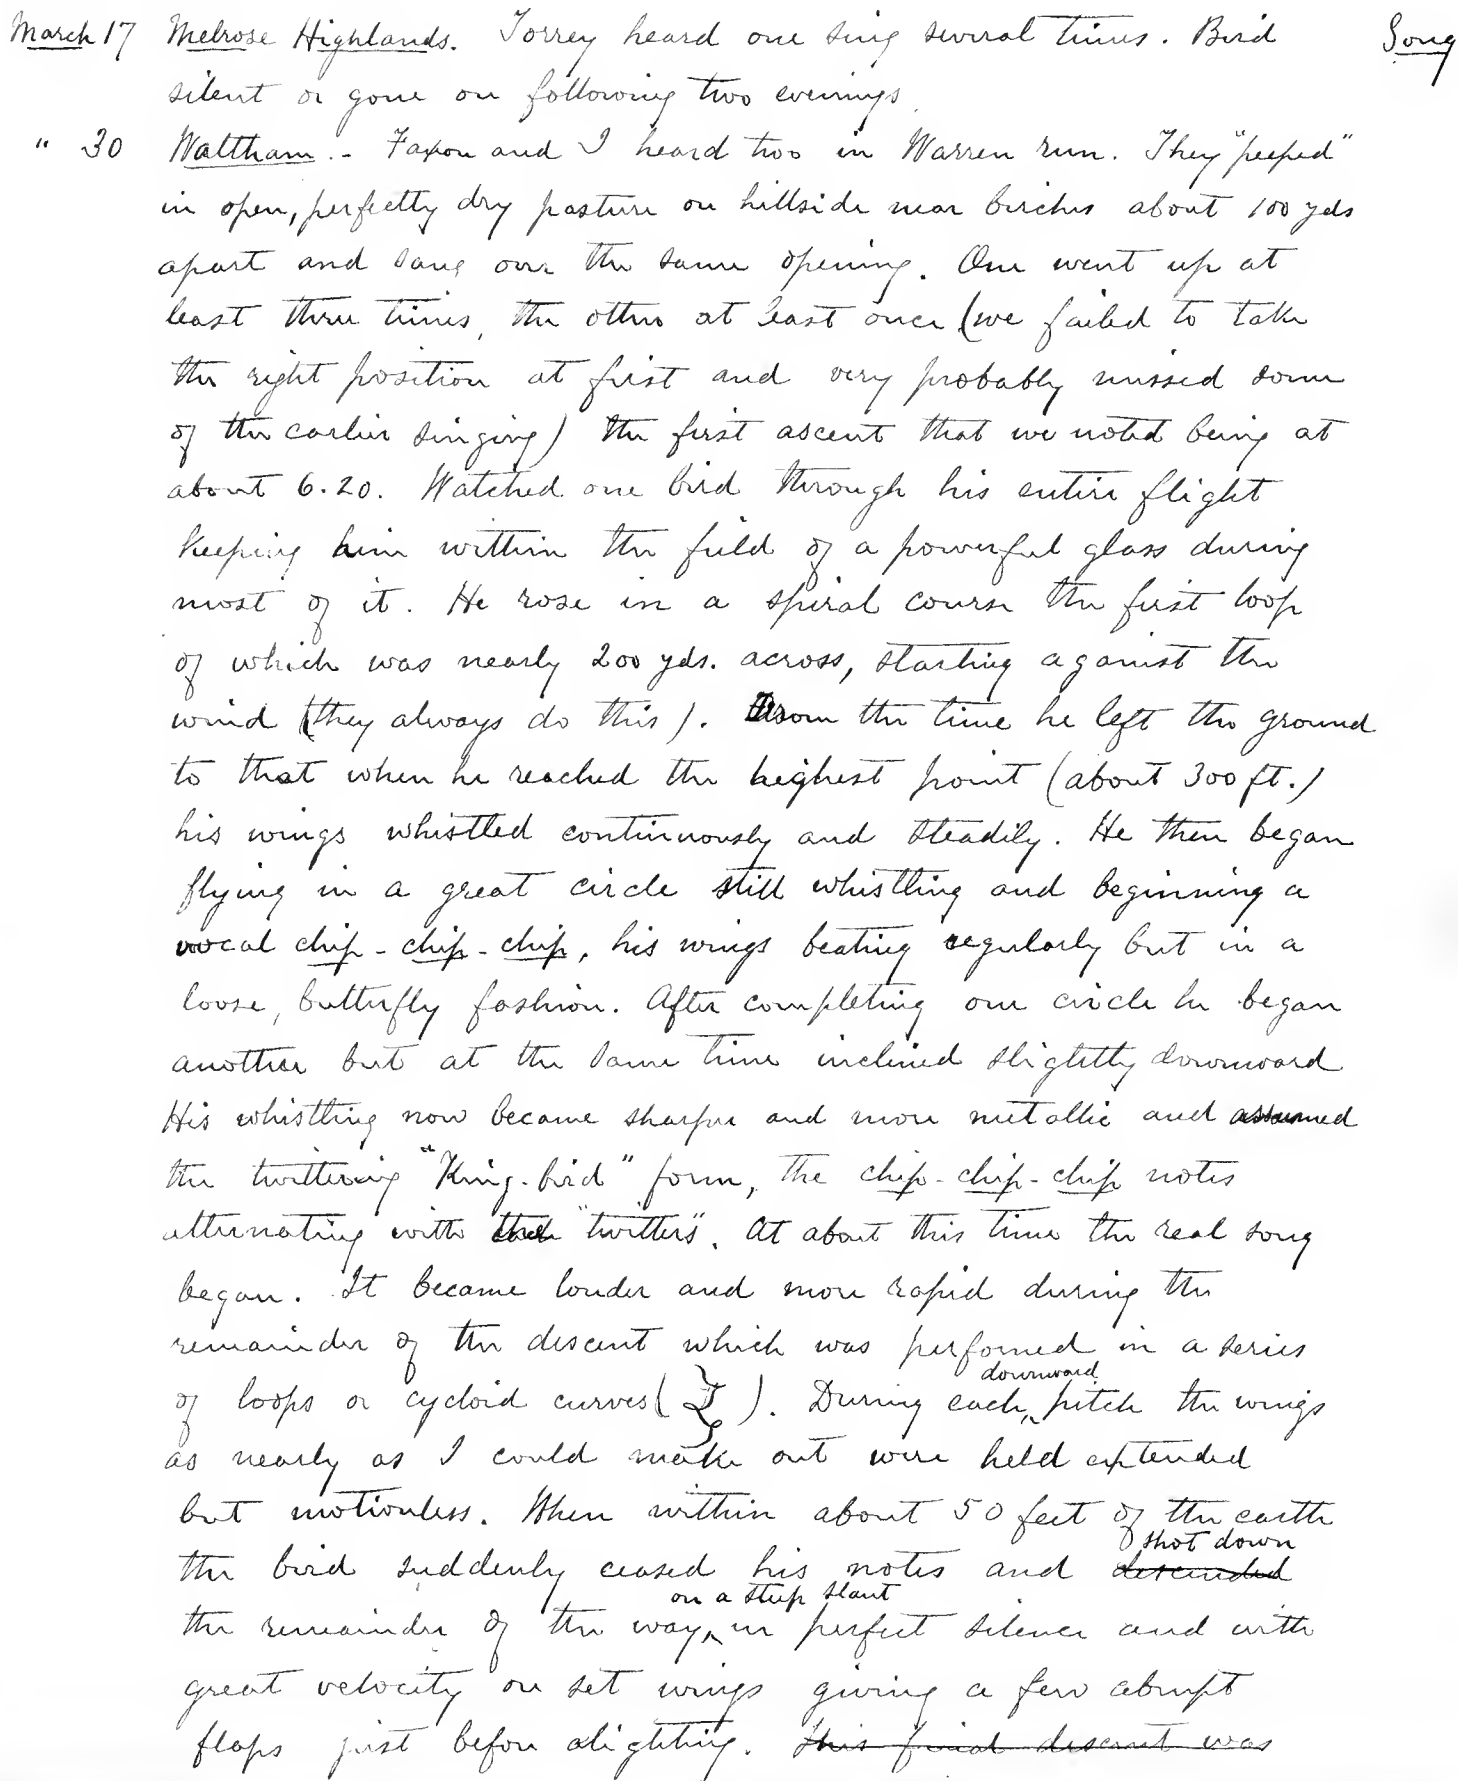 March 17 Melrose Highlands. Torrey heard one sing several times. Bird Song
silent or gone on following two evenings.
" 30 Waltham. - Faxon and I heard two in Warren run. They "peeped"
in open, perfectly dry pasture on hillside near birches about 100 yds
apart and sang over the same opening. One went up at
least three times, the other at least once (we failed to take
the right position at first and very probably missed some
of the earlier singing) the first ascent that we noted being at
about 6.20. Watched one bird through his entire flight
keeping him within the field of a powerful glass during
most of it. He rose in a spiral course the first loop
of which was nearly 200 yds. across, starting against the
wind (they always do this). From the time he left the ground
to that when he reached the highest point (about 300 ft.)
his wings whistled continuously and steadily. He then began
flying in a great circle still whistling and beginning a
vocal chip - chip - chip, his wings beating regularly but in a
loose, butterfly fashion. After completing one circle he began
another but at the same time inclined slightly downward
His whistling now became sharper and more metallic and assumed
the twittering "King-bird" form, the chip - chip - chip notes
alternating with the "twitters". At about this time the real song
began. It became louder and more rapid during the
remainder of the descent which was perfomed in a series
of loops or cycloid curves ( ). During each downward pitch the wings
as nearly as I could make out were held extended
but motionless. When within about 50 feet of the earth
the bird suddenly ceased his notes and descended shot down
the remainder of the way on a steep slant in perfect silence and with
great velocity on set wings giving a few abrupt
flaps just before alighting. This final descent was